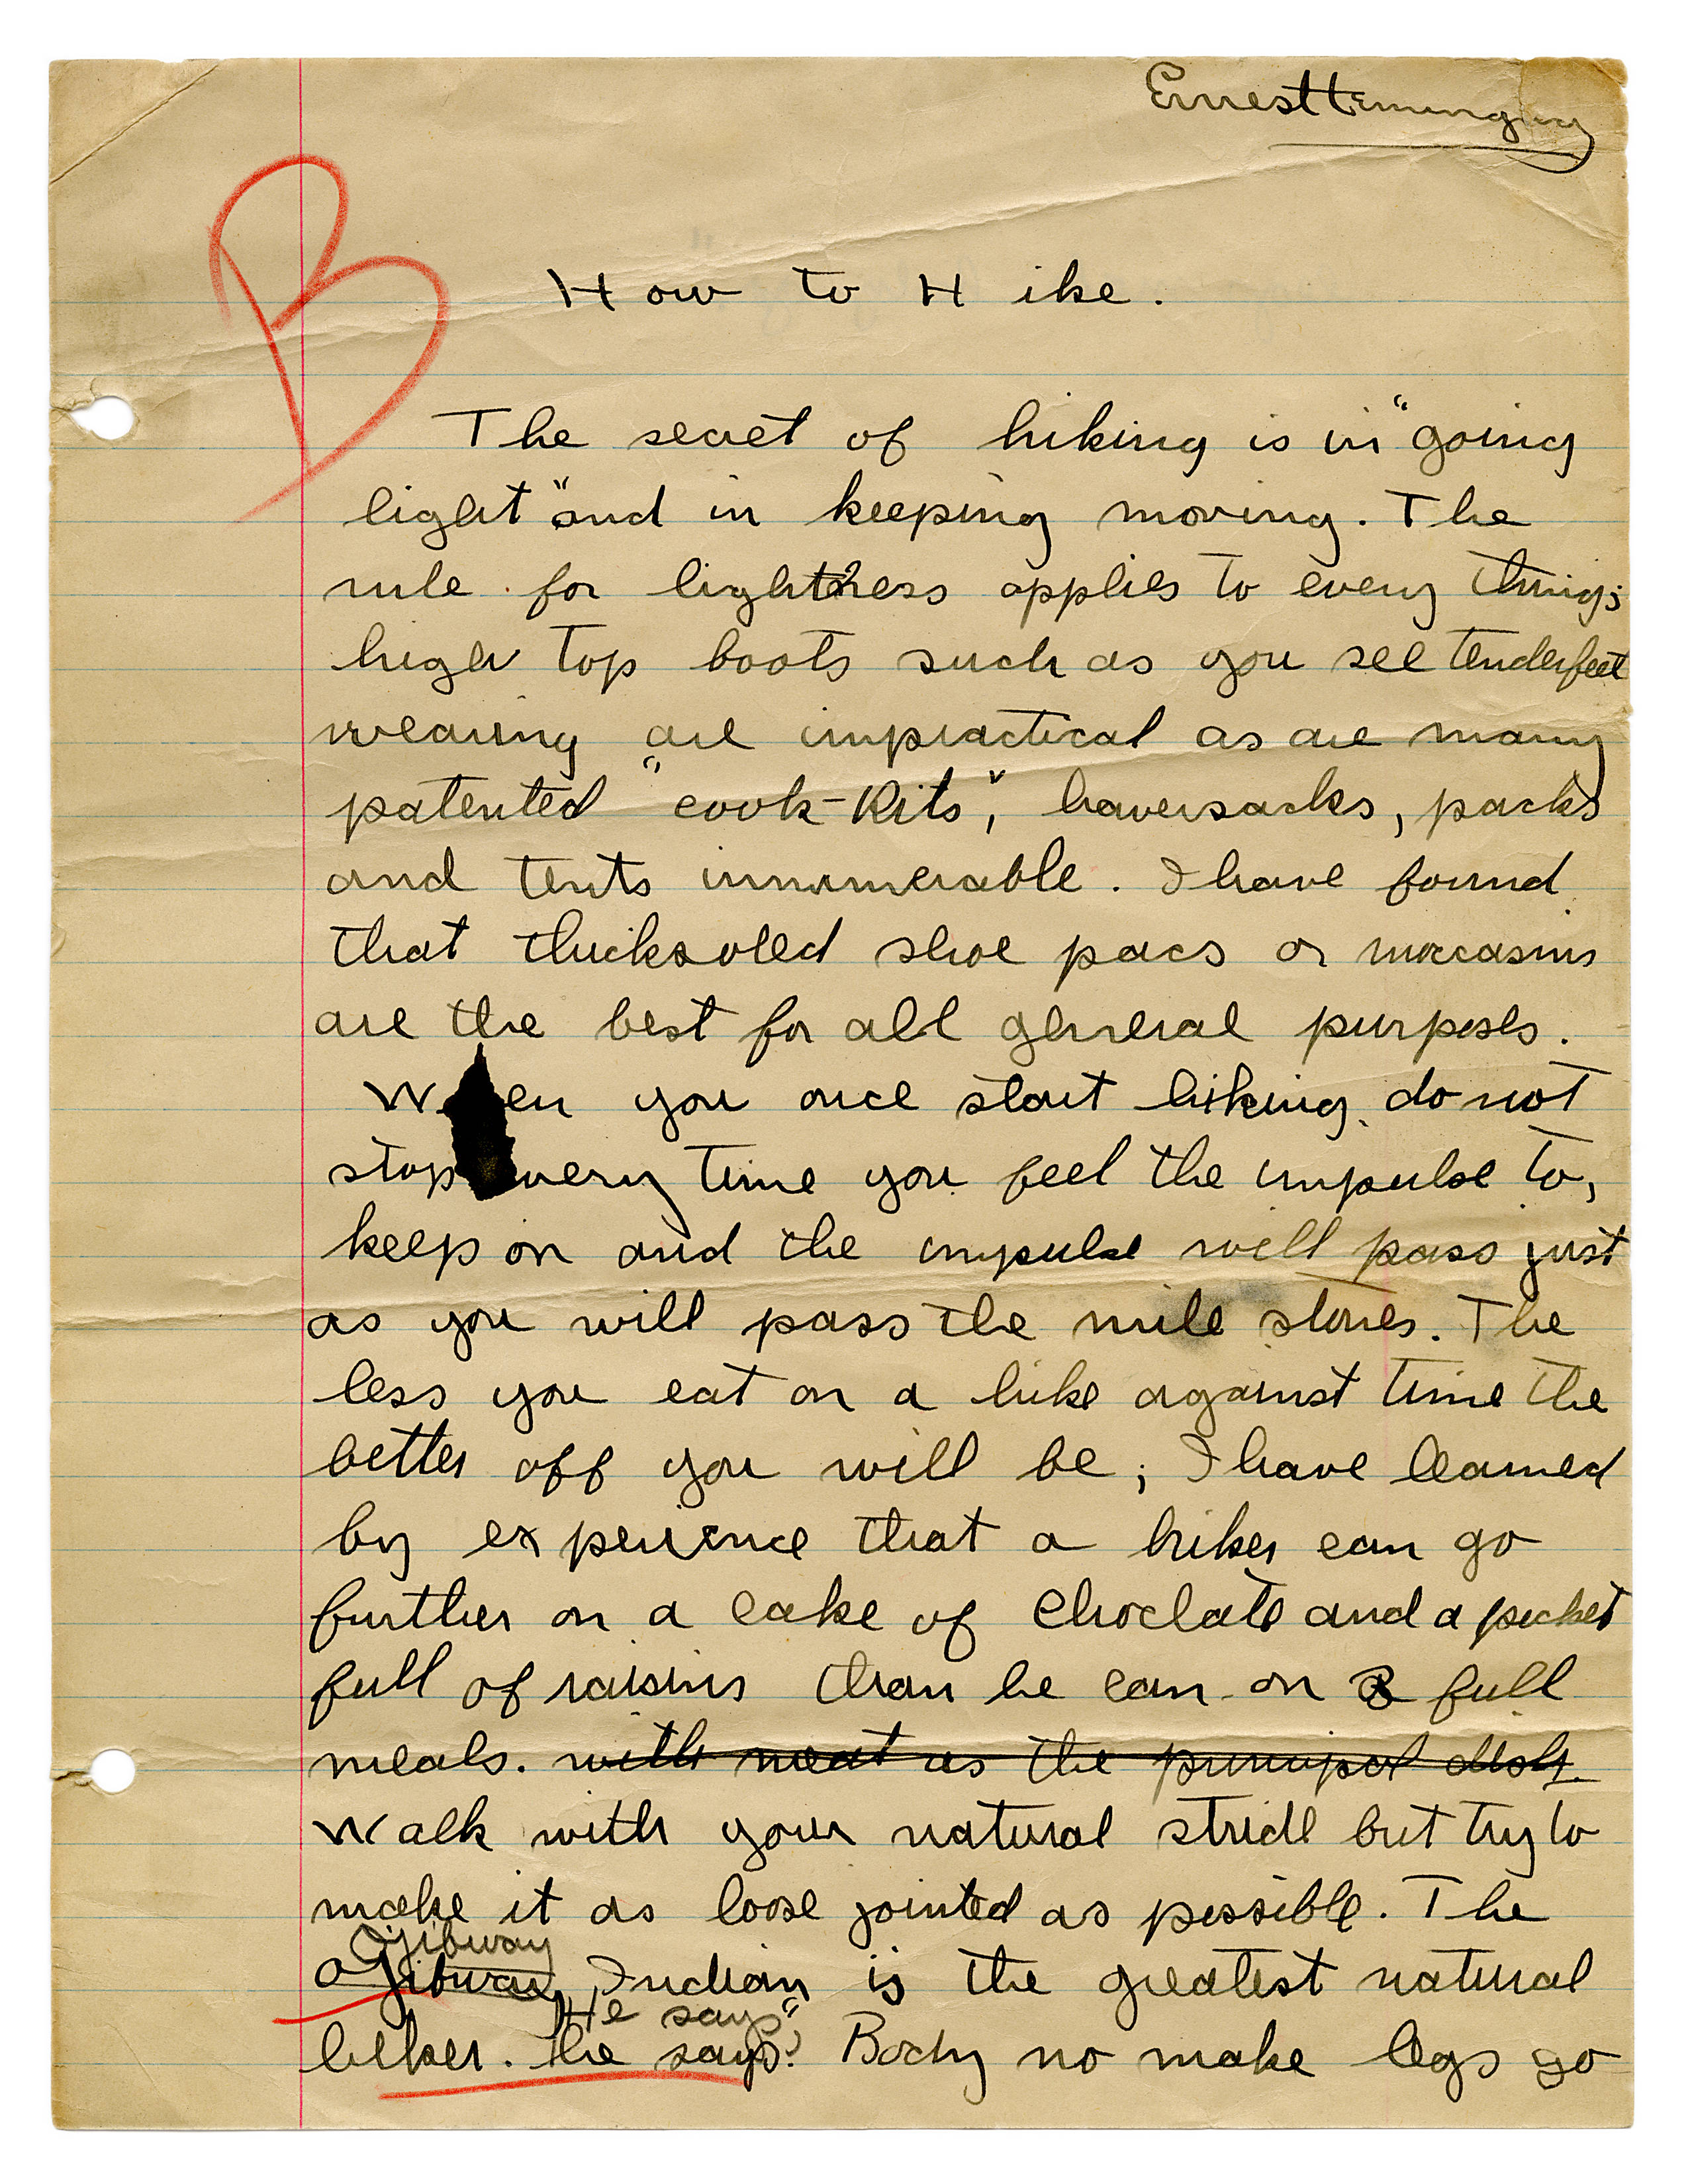 Ernest Hemingway
B
How to Hike.
The secret of hiking is in "going
light" and in keeping moving. The
rule for lightness applies to every thing;
high top boots such as you see tenderfeet
wearing are impractical as are many
patented "cook-kits", haversacks, packs
and tents innumerable. I have found
that thicksoled shoe pacs or moccasins
are the best for all general purposes.
When you once start hiking do not
stop every time you feel the impulse to,
keep on and the impulse will pass just
as you will pass the mile stones. The
less you eat on a hike against time the
better off you will be; I have learned
by experience that a hiker can go
further on a cake of choclate and a pocket
full of raisins than he can on full
meals. with meat as the principal dish.
Walk with your natural stride but try to
make it as loose jointed as possible. The
Ojibway
Ojibway Indian is the greatest natural
He says "
hiker. he says: Body no make legs go